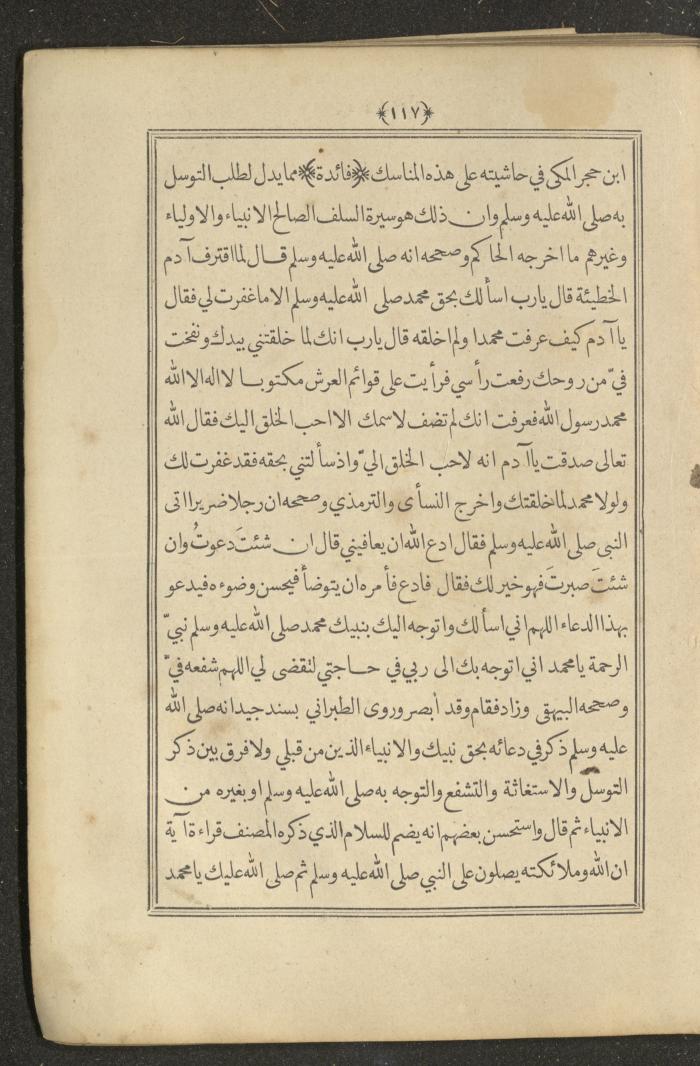 ﴿١١٧﴾
ابن حجر المكى في حاشيته على هذه المناسك ﴿فائدة﴾ مما يدل لطلب التوسل
به صلى الله عليه وسلم وان ذلك هو سيرة السلف الصالح الانبياء والاولياء
وغيرهم ما اخرجه الحاكم وصححه انه صلى الله عليه وسلم قال لما اقترف آدم
الخطيئة قال يارب اسألك بحق محمد صلى الله عليه وسلم الا ما غفرت لي فقال
يا آدم كيف عرفت محمدا ولم اخلقه قال يارب انك لما خلقتني بيدك ونفخت
فيّ من روحك رفعت رأسي فرأيت على قوائم العرش مكتوبا لا اله الا الله
محمد رسول الله فعرفت انك لم تضف لاسمك الا احب الخلق اليك فقال الله
تعالى صدقت يا آدم انه لاحب الخلق اليّ واذ سألتني بحقه فقد غفرت لك
ولولا محمد لما خلقتك واخرج النسأى والترمذي وصححه ان رجلا ضريرا اتى
النبي صلى الله عليه وسلم فقال ادع الله ان يعافيني قال ان شئتَ دعوتُ وان
شئتَ صبرتَ فهو خير لك فقال فادع فأمره ان يتوضأ فيحسن وضوءه فيدعو
بهذا الدعاء اللهم اني اسألك واتوجه اليك بنبيك محمد صلى الله عليه وسلم نبيّ
الرحمة يا محمد اني اتوجه بك الى ربي في حاجتي لتقضى لي اللهم شفعه فيّ
وصححه البيهقى وزاد فقام وقد أبصر وروى الطبراني بسند جيد انه صلى الله
عليه وسلم ذكر في دعائه بحق نبيك والانبياء الذين من قبلي ولا فرق بين ذكر
التوسل والاستغاثة والتشفع والتوجه به صلى الله عليه وسلم او بغيره من
الانبياء ثم قال واستحسن بعضهم انه يضم للسلام الذي ذكره المصنف قراءة آية
ان الله وملائكته يصلون على النبي صلى الله عليه وسلم ثم صلى الله عليك يا محمد